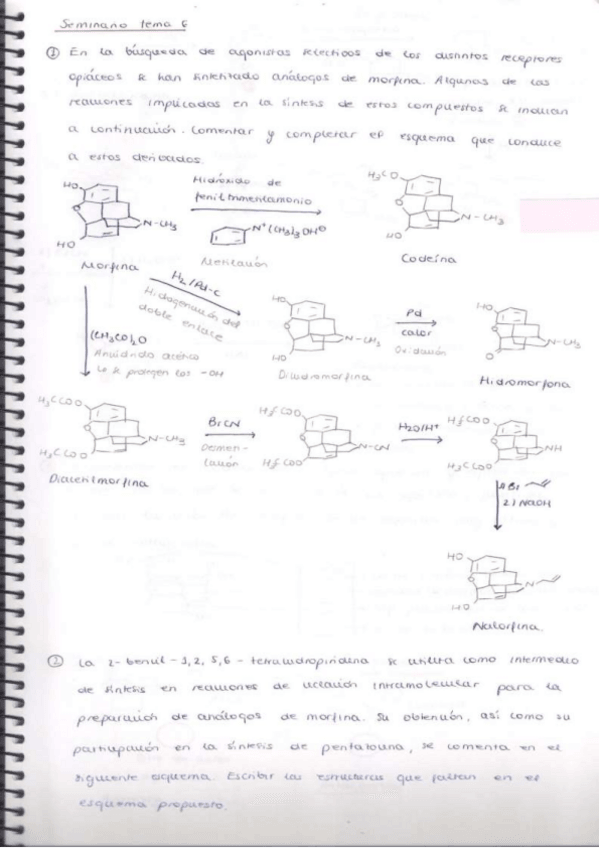 Seminario tema 6
① En la búsqueda de agonistas selectivos de los distintos receptores
opiáceos se han sintetizado análogos de morfina. Algunas de las
reacciones implicadas en la síntesis de estos compuestos se indican
a continuación. Comentar y completar el esquema que conduce
a estos derivados.
HO
HO
N-CH3
Morfina
Hidróxido de
feniltrimetilamonio
N+(CH3)3OH⊖
Metilación
H3CO
HO
N-CH3
Codeína
H2/Pd-C
Hidrogenación del
doble enlace
HO
HO
N-CH3
Dihidromorfina
Pd
calor
Oxidación
HO
O
N-CH3
Hidromorfona
(CH3CO)2O
Anhídrido acético
Se protegen los -OH
H3CCOO
H3CCOO
N-CH3
Diacetilmorfina
BrCN
Desmeti-
lación
H3CCOO
H3CCOO
N-CN
H2O/H+
H3CCOO
H3CCOO
NH
Br
2) NaOH
HO
HO
N
Nalorfina
② La 2-bencil-1,2,5,6-tetrahidropiridina se utiliza como intermedio
de síntesis en reacciones de ciclación intramolecular para la
preparación de análogos de morfina. Su obtención, así como su
participación en la síntesis de pentazocina, se comenta en el
siguiente esquema. Escribir las estructuras que faltan en el
esquema propuesto.